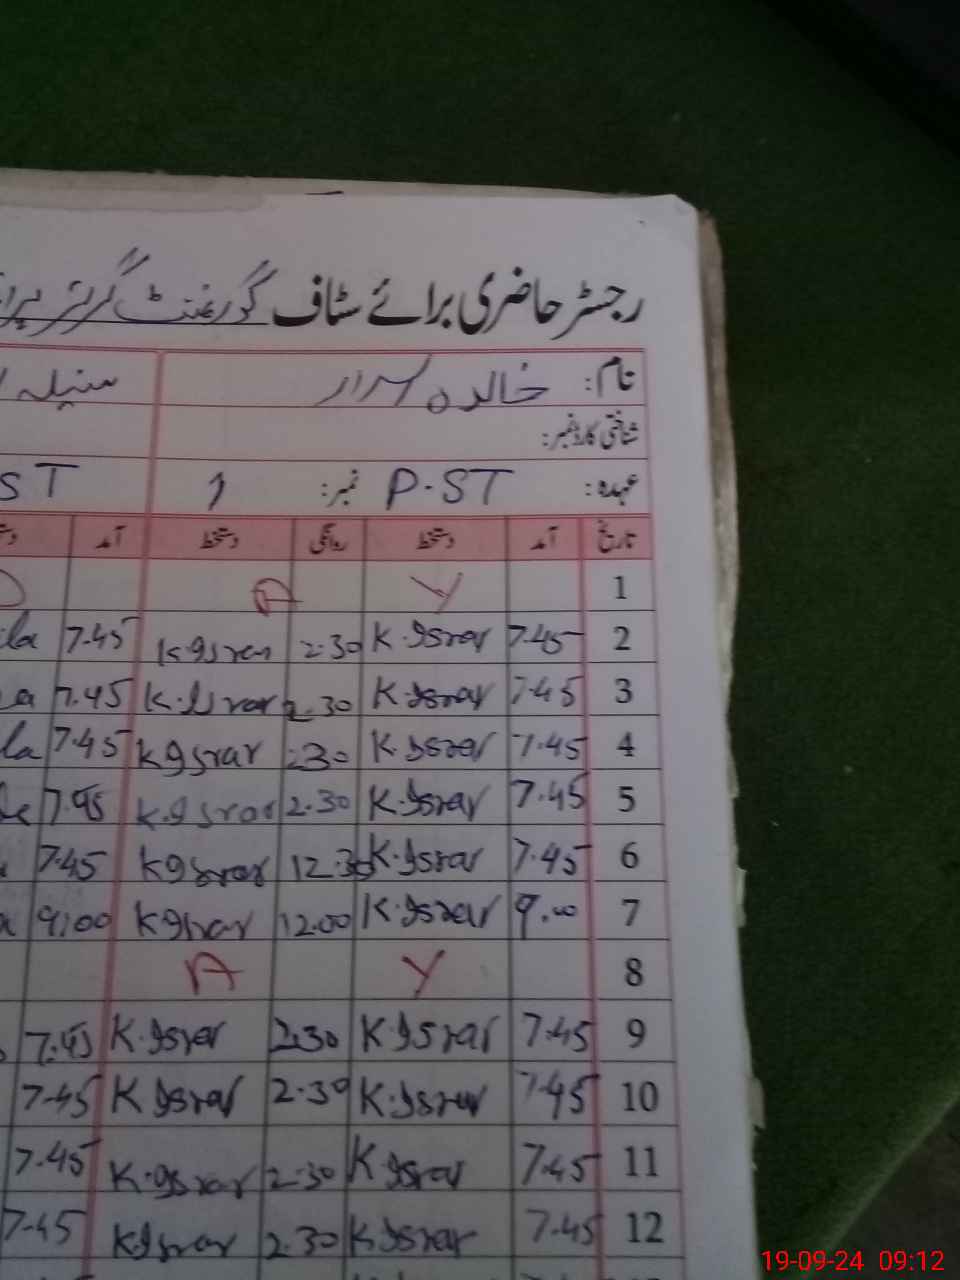 رجسٹر حاضری برائے سٹاف گورنمنٹ گرلز
نام: خالدہ اسرار
شناختی کارڈ نمبر:
عہدہ: P.ST نمبر: 1 ST
تاریخ آمد دستخط روانگی دستخط آمد
1 Y A
2 7.45 K.Israr 2.30 K.Israr 7.45 la
3 7.45 K.Israr 2.30 K.Israr 7.45 a
4 7.45 K.Israr :30 K Israr 7.45 la
5 7.45 K.Israr 2.30 K.Israr 7.45
6 7.45 K.Israr 12.30 K Israr 7.45
7 9.00 K.Israr 12.00 K Israr 9:00
8 Y A
9 7.45 K Israr 2.30 K.Israr 7.45
10 7.45 K.Israr 2.30 K Israr 7.45
11 7.45 K Israr 2.30 K.Israr 7.45
12 7.45 K Israr 2.30 K.Israr 7.45
19-09-24 09:12